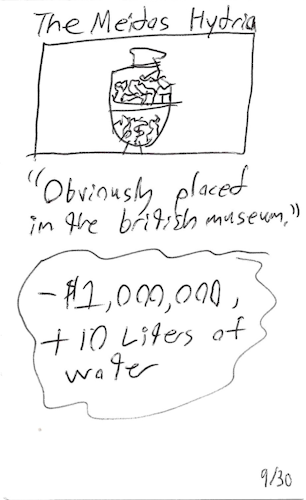 The Meidas Hydria
"Obviously placed
in the british museum."
-$1,000,000,
+10 Liters of
water
9/30